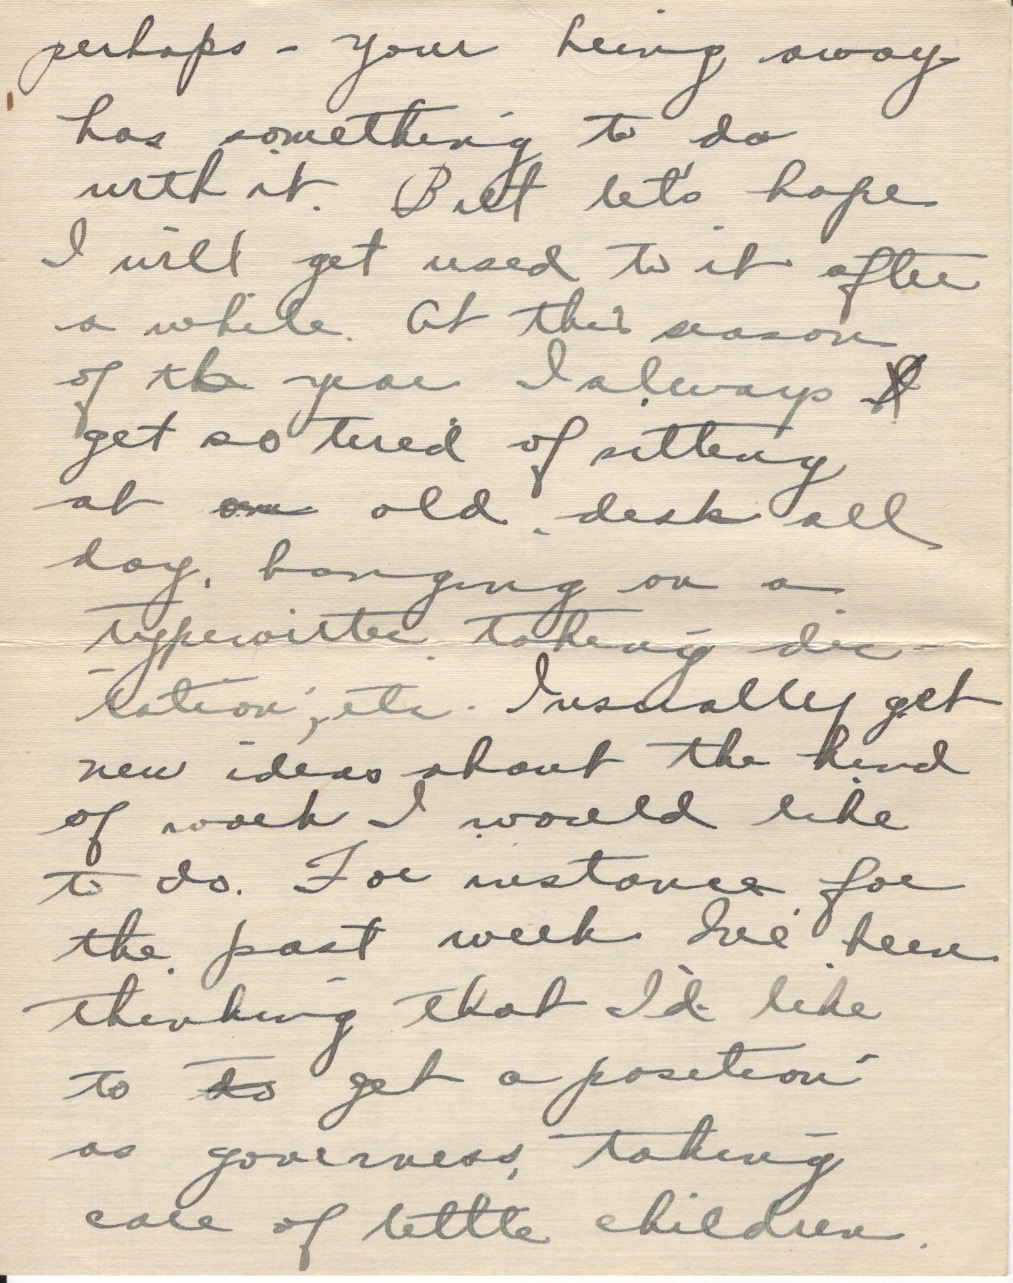 perhaps - your being away
has something to do
with it. But let's hope
I will get used to it after
a while. At this season
of the year I always
get so tired of sitting
at an old desk all
day, banging on a
typewriter taking dic-
tation, etc. I usually get
new ideas about the kind
of work I would like
to do. For instance for
the past week I've been
thinking that I'd like
to do get a position
as governess, taking
care of little children.